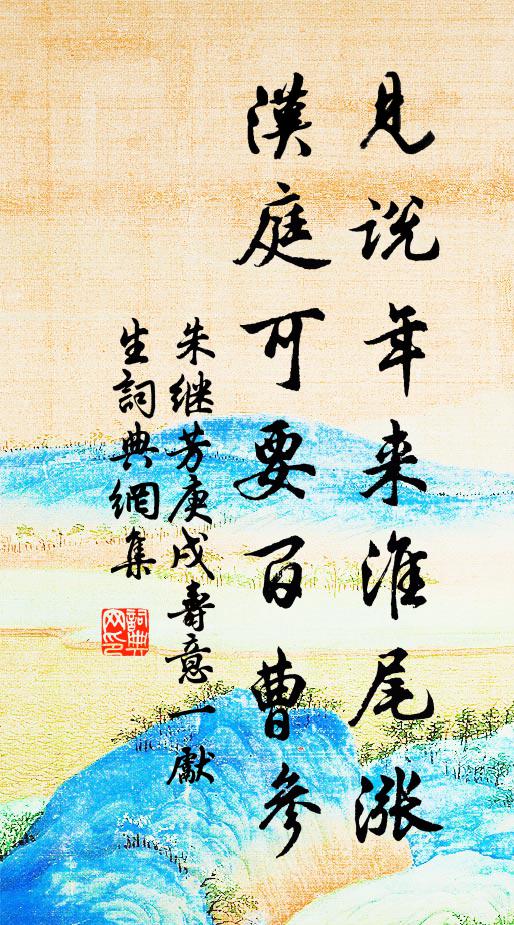 見说年来淮尾涨
漢庭可要百曹參
朱继芳庚戌壽意一獻
生詞典網集
詞典網印